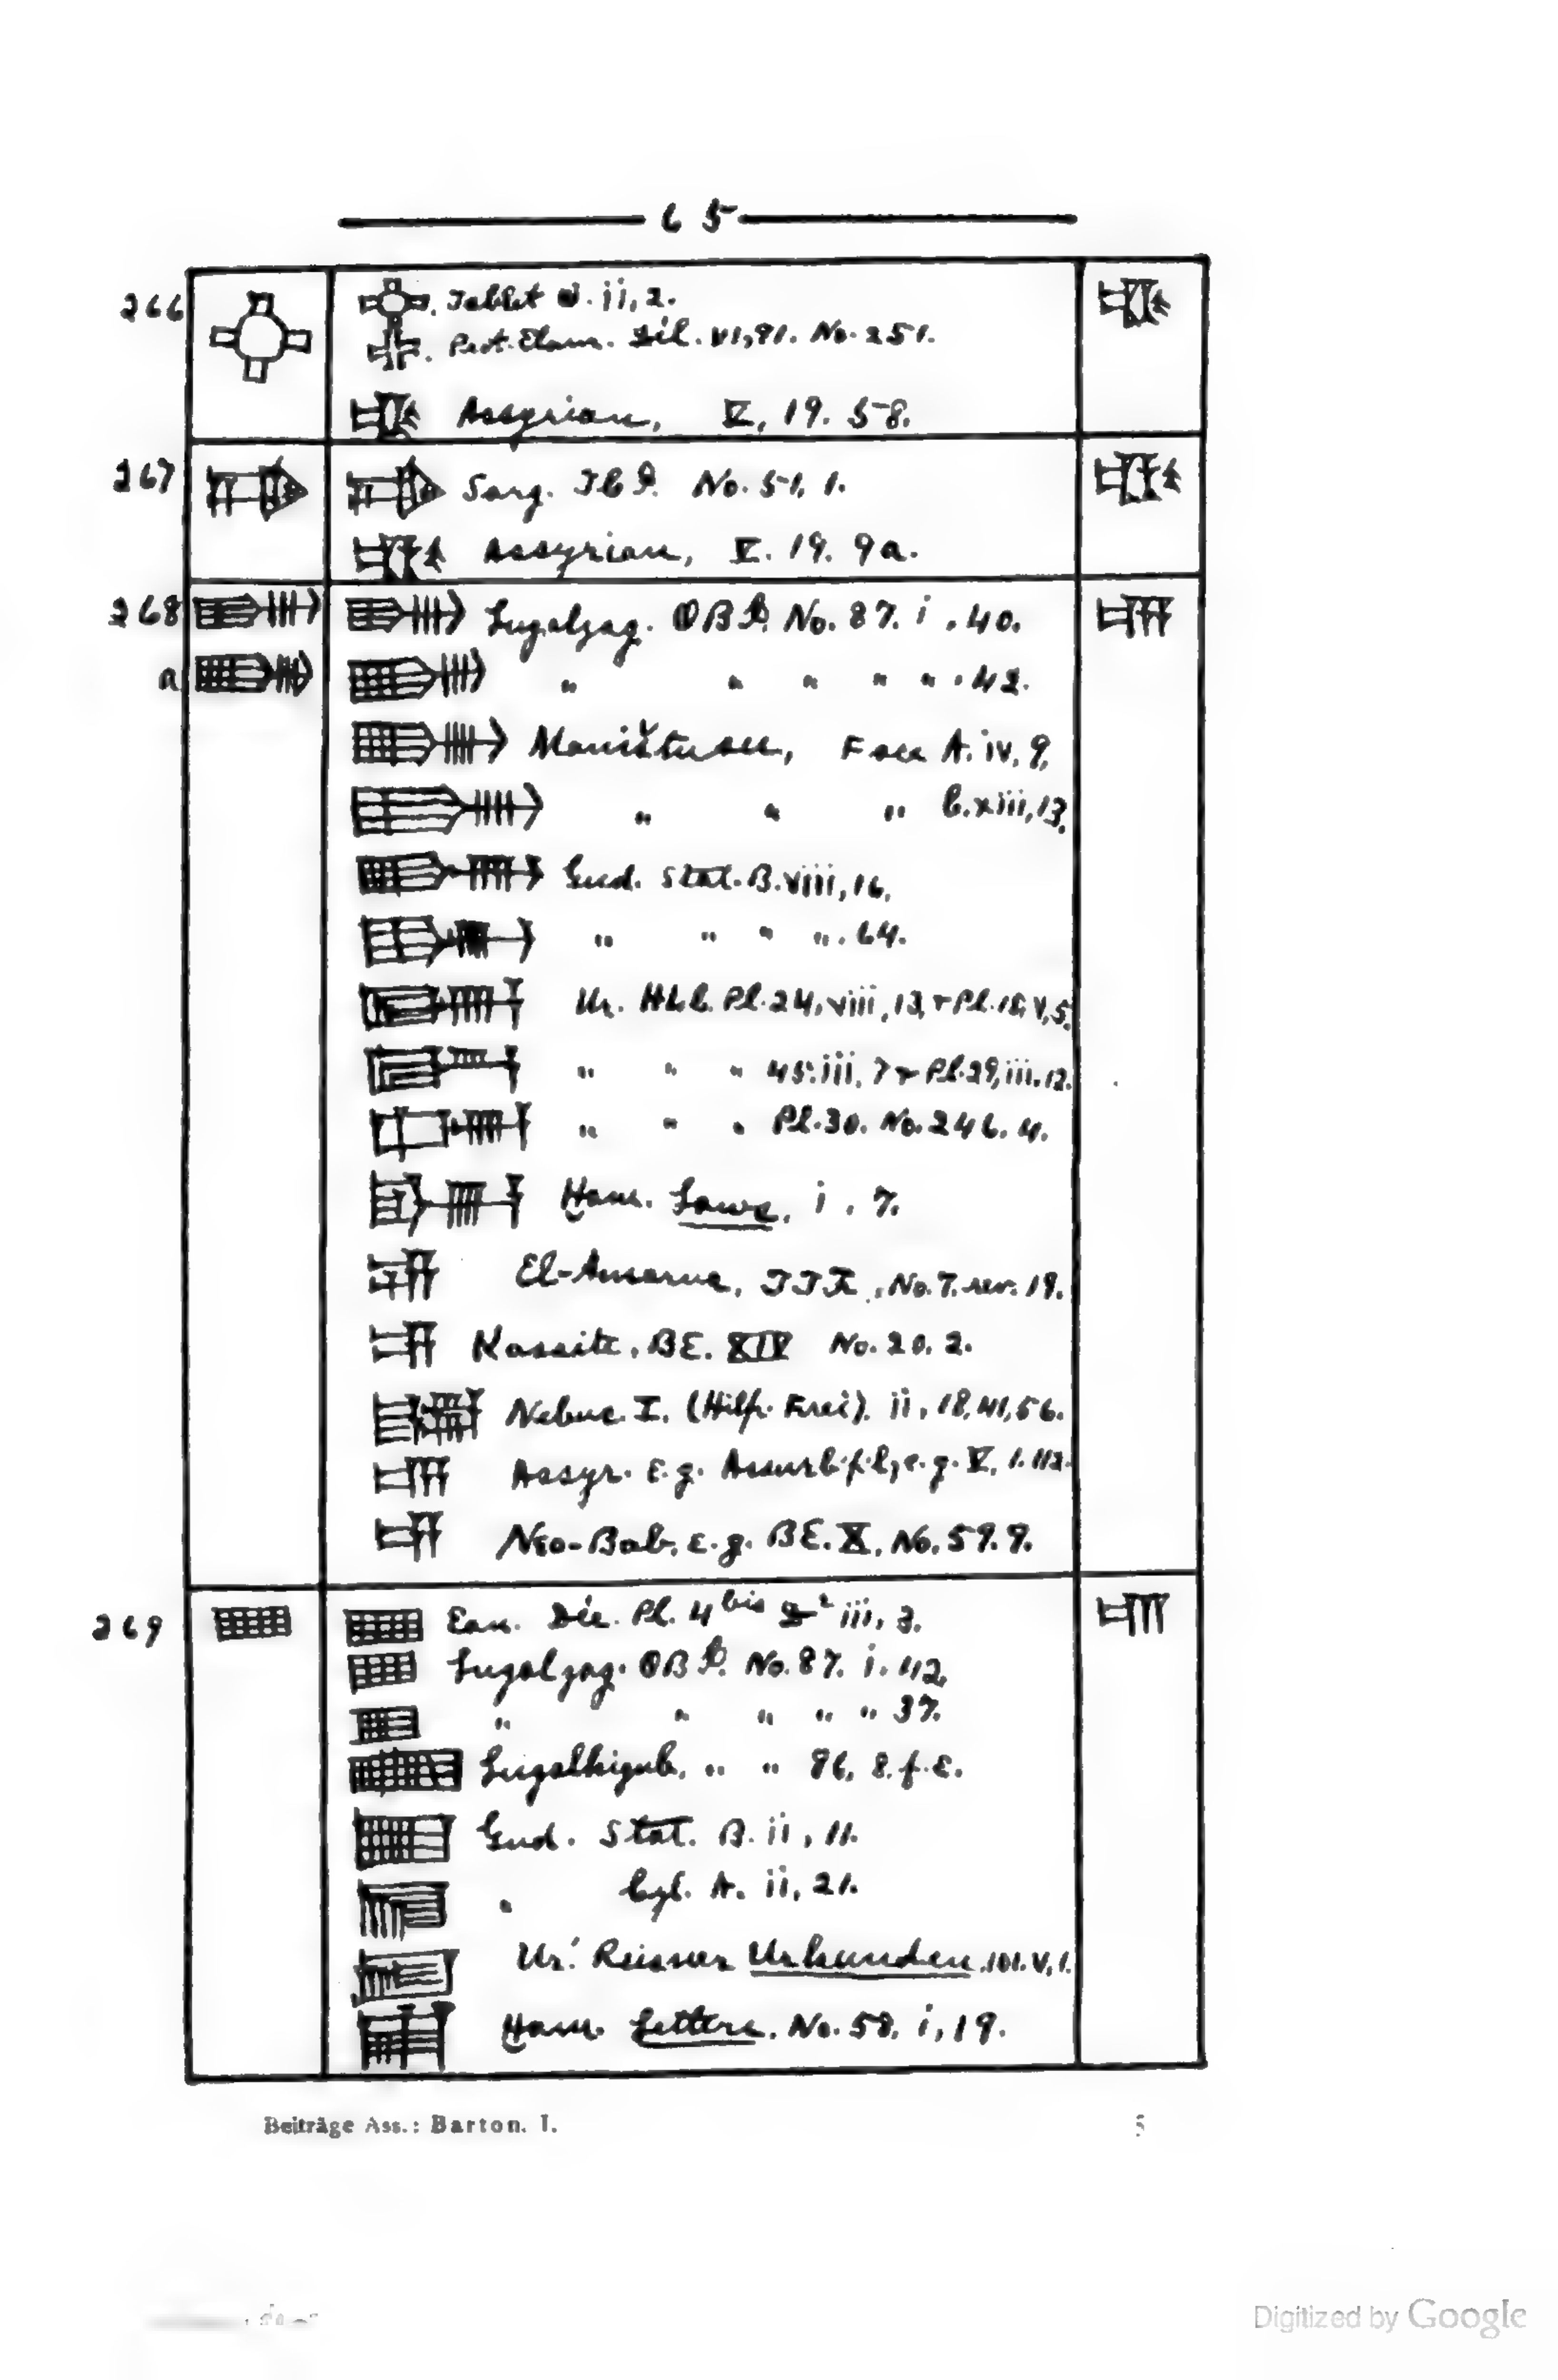 65
266
Tablet ii, 2.
Prot. Elam. Dél. VI, 91. No. 251.
Assyrian, V, 19. 58.
267
Sarg. No. 51, 1.
Assyrian, V. 19. 9a.
268
Lugalzag. OBI. No. 87. i. 40.
a
" " " " " . 42.
Maništusu, Face A. iv, 9,
" " " C. xiii, 13.
Gud. Stat. B. viii, 16,
" " " " . 64.
Ur. HLC. Pl. 24, viii, 13, + Pl. 18, V, 5.
" " " 45: iii, 7 + Pl. 29, iii. 12.
" " " Pl. 30. No. 246. 4.
Ḫam. Laws, i. 7.
El-Amarna, No. 7. rev. 19.
Kassite, BE. XIV No. 20. 2.
Nebuc. I. (Hilp. Frei). ii, 18, 41, 56.
Assyr. e.g. e.g. V, 1. 112.
Neo-Bab, e.g. BE. X, No. 59. 9.
269
Ean. Déc. Pl. 4 bis iii, 3.
Lugalzag. OBI. No. 87. i. 42,
" " " " " 37.
Lugalkigub, " " 86, 8. f. e.
Gud. Stat. B. ii, 11.
" Cyl. A. ii, 21.
Ur. Reisner Urkunden. 101. V, 1.
Ḫam. Letters, No. 58, i, 19.
Beiträge Ass.: Barton. I.
5
Digitized by Google